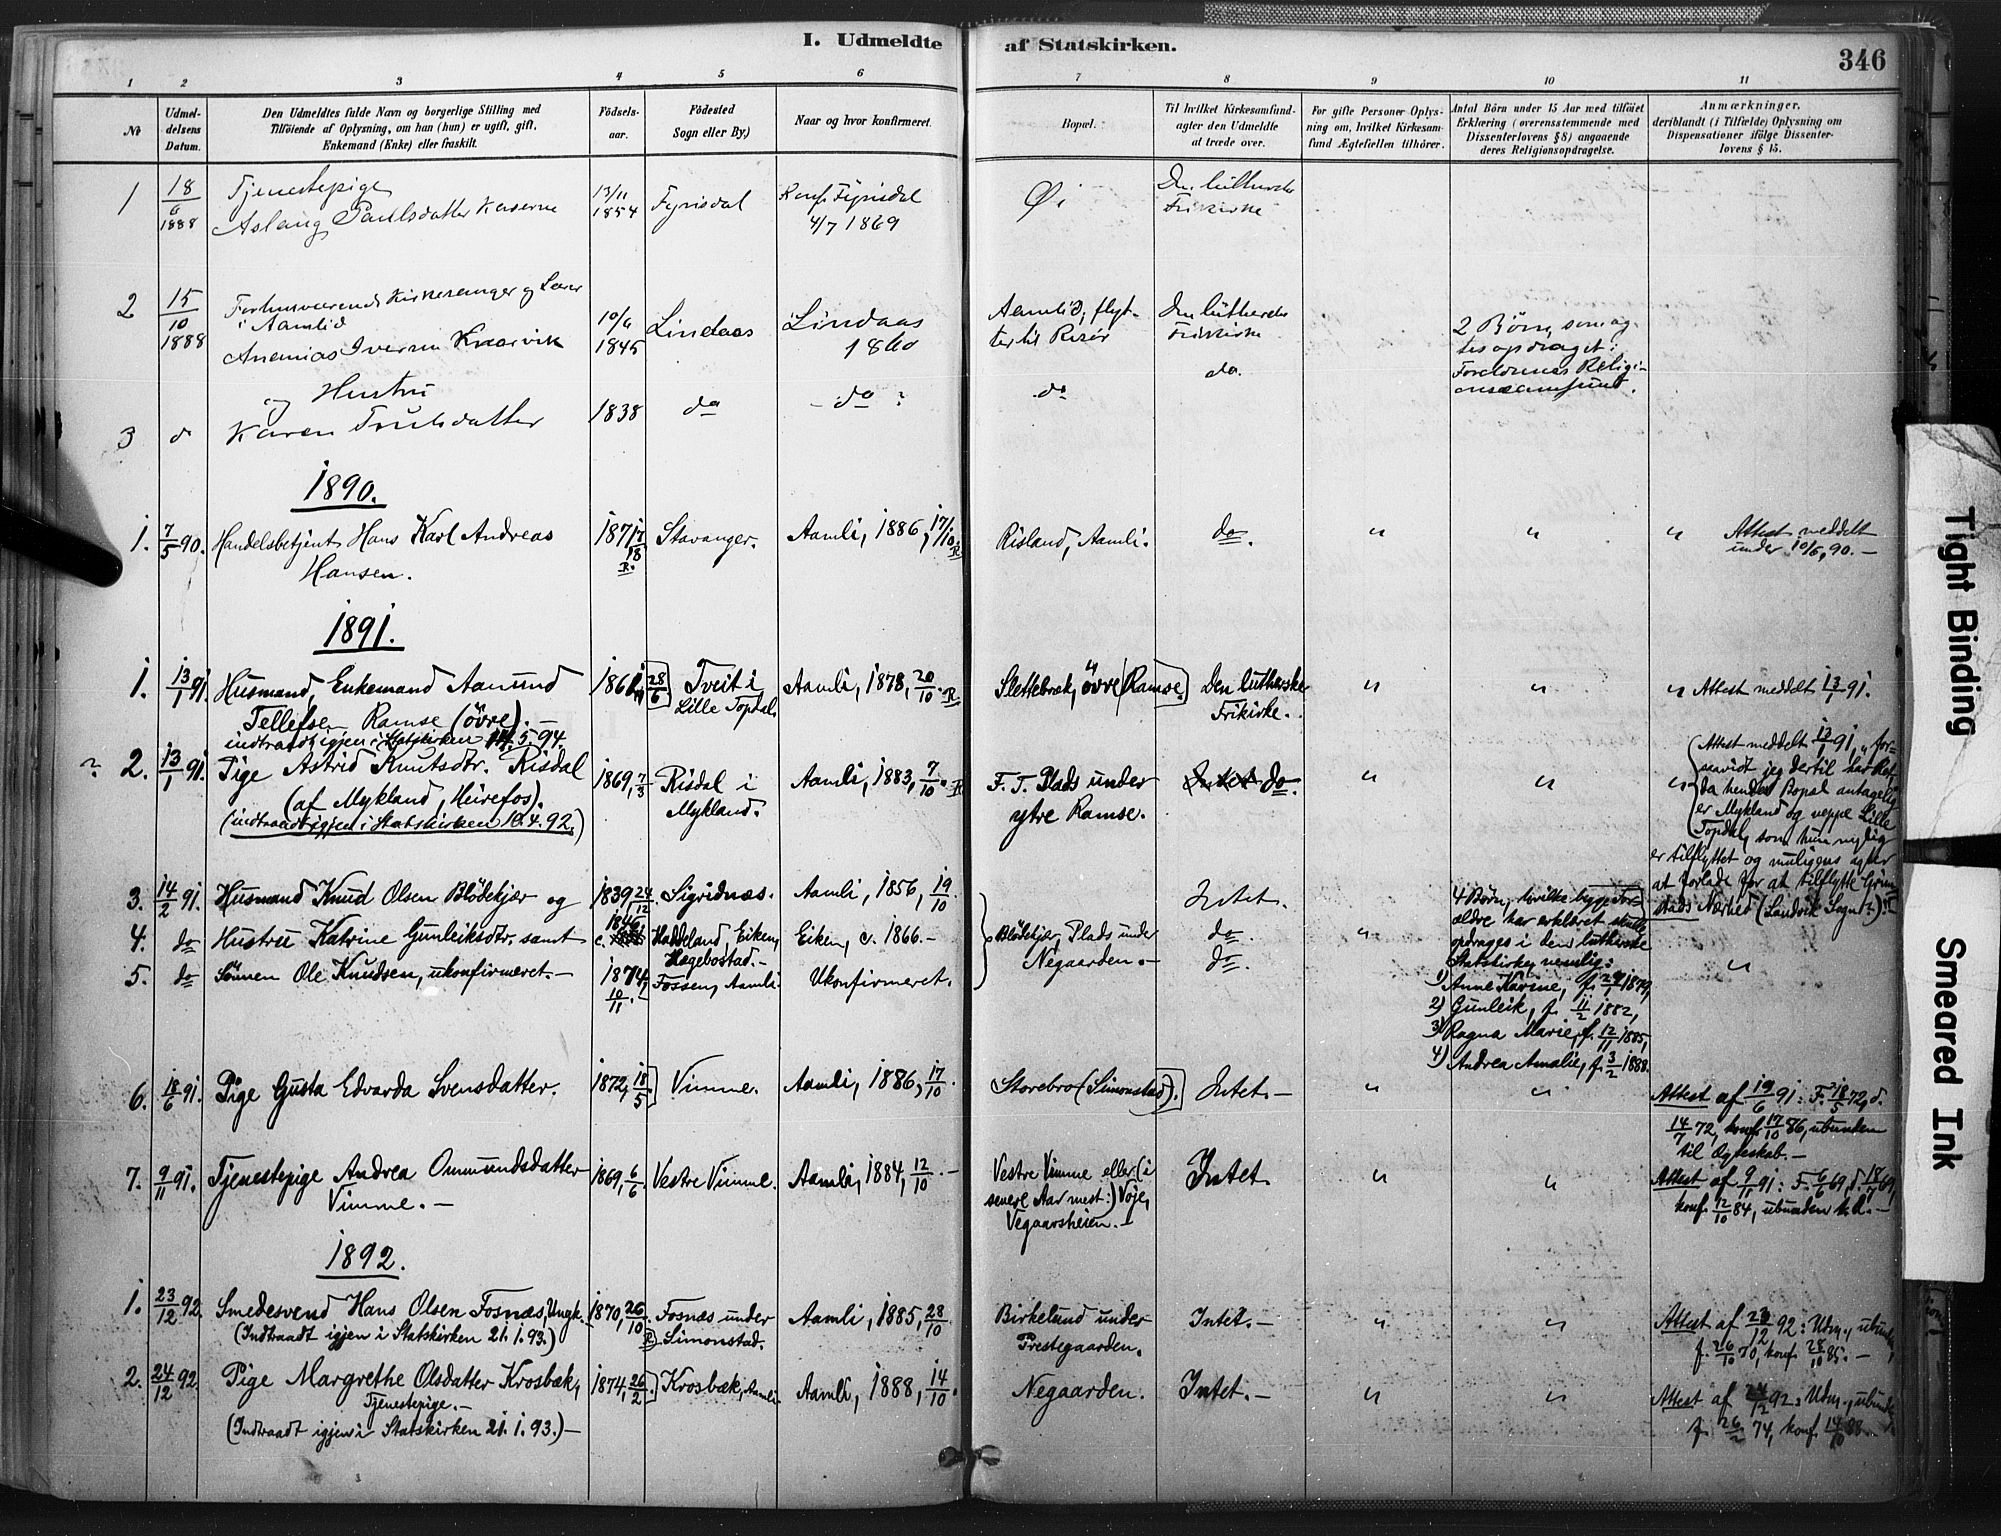 I. Udmeldte af Statskirken.
346
1 2 3 4 5 6 7 8 9 10 11
No
Udmel-
delsens
Datum.
Den Udmeldtes fulde Navn og borgerlige Stilling med
Tilføiende af Oplysning, om han (hun) er ugift, gift,
Enkemand (Enke) eller fraskilt.
Fødsels-
aar.
Fødested
Sogn eller By.)
Naar og hvor konfirmeret.
Bopæl.
Til hvilket Kirkesamfund-
agter den Udmeldte
at træde over.
For gifte Personer Oplys-
ning om, hvilket Kirkesam-
fund Ægtefællen tilhører.
Antal Børn under 15 Aar med tilføiet
Erklæring (overensstemmende med
Dissenterlovens § 8) angaaende
deres Religionsopdragelse.
Anmærkninger,
deriblandt (i Tilfælde) Oplysning om
Dispensationer ifølge Dissenter-
lovens § 15.
1 18/6 1888
Tjenestepige
Aslaug Paulsdatter
13/11 1854
Fyrisdal
Konf. Fyrisdal
4/7 1869
Øi
Den lutherske
Frikirke
2 15/10 1888
Forhenværende Kirkesanger og Lærer
i Aamlid
Ananias Iversen Knarvik
10/6 1845
Lindaas
Lindaas
1860
Aamlid, flyt-
ter til Risør
Den lutherske
Frikirke
2 Børn, som ag-
tes opdraget i
Forældrenes Religi-
onssamfund.
og Hustru
3 do
Karen Trulsdatter
1838
do
do ?
do
do.
1890.
1. 7/5 90.
Handelsbetjent Hans Karl Andreas
Hansen.
1871 17/18 R.
Stavanger.
Aamli, 1886, 17/10. R
Risland, Aamli.
do.
" " "
Attest meddelt
under 10/5, 90. –
1891.
1. 13/1 91.
Husmand, Enkemand Aamund
Tellefsen Ramse (övre). –
indtraadt igjen i Statskirken 14.5.94.
28/6
Tveit i
Lille Topdal.
Aamli, 1878, 20/10. R
Slettebræk, övre (Ramse.)
Den lutherske
Frikirke.
" " "
Attest meddelt 13/1 91.
? 2. 13/1 91.
Pige Astrid Knutsdtr. Risdal
(af Mykland, Heirefos).
(indtraadt igjen i Statskirken 10.4.92.)
1869, 7/3
Risdal i
Mykland.
Aamli, 1883, 7/10. R
F. T. Plads under
ytre Ramse.
Intet do.
" " "
Attest meddelt 13/1 91, "for-
saavidt jeg dertil har Ret,
da hendes Bopæl antagelig
er Mykland og neppe Lille
Topdal, som hun nylig
er tilflyttet og muligens agter
at forlade for at tilflytte Grim-
stads Nærhed (Landvik Sogn?)."
3. 14/2 91.
Husmand Knud Olsen Blödekjær og
1839, 24/12
Sigridnæs.
Aamli, 1856, 19/10.
Intet.
4. do
Hustru Katrine Gunleiksdtr. samt
c. 1846
Haddeland, Eiken,
Hægebostad. –
Eiken, c. 1866. –
Blödekjær, Plads under
Negaarden. –
do.
"
5. do
Sönnen Ole Knudsen, ukonfirmeret. –
1874, 10/11. –
Fossen, Aamli.
Ukonfirmeret.
do.
"
4 Børn, hvilke begge For-
ældre har erklæret skulle
opdrages i den lutherske
Statskirke, nemlig:
1) Anne Karine, f. 29/1 1879,
2) Gunleik, f. 11/2 1882,
3) Ragna Marie, f. 12/11 1885,
4) Andrea Amalie, f. 3/2 1888.
6. 18/6 91.
Pige Gusta Edvarda Svensdatter.
1872, 18/5
Vimme.
Aamli, 1886, 17/10.
Storebro (Simonstad).
Intet. –
" "
Attest af 19/6 91: F. 18/5 72, d.
14/7 72, konf. 17/10 86, ubunden
til Ægteskab. –
7. 9/11 91.
Tjenestepige Andrea Ommundsdatter
Vimme. –
1869, 6/6
Vestre Vimme.
Aamli, 1884, 12/10. –
Vestre Vimme eller (i
senere Aar mest:) Voje,
Vegaarsheien. –
Intet.
" "
Attest af 9/11 91: F. 6/6 69, d. 18/7 69,
konf. 12/10 84, ubunden –
1892.
1. 23/12 92.
Smedesvend Hans Olsen Fosnæs, Ungk. –
(Indtraadt igjen i Statskirken 21.1.93.)
1870, 26/10. R
Fosnæs under
Simonstad.
Aamli, 1885, 28/10.
Birkelund under
Prestegaarden.
Intet. –
" "
Attest af 23/12 92: Udm., ubunden,
f. 26/10 70, konf. 28/10 85. –
2. 24/12 92.
Pige Margrethe Olsdatter Krosbæk,
Tjenestepige. –
(Indtraadt igjen i Statskirken 21.1.93.) –
1874, 26/2.
Krosbæk, Aamli.
Aamli, 1888, 14/10.
Negaarden.
Intet. –
" "
Attest af 24/12 92: Udm., ubunden
f. 26/2 74, konf. 14/10 88. –
Tight Binding
Smeared Ink